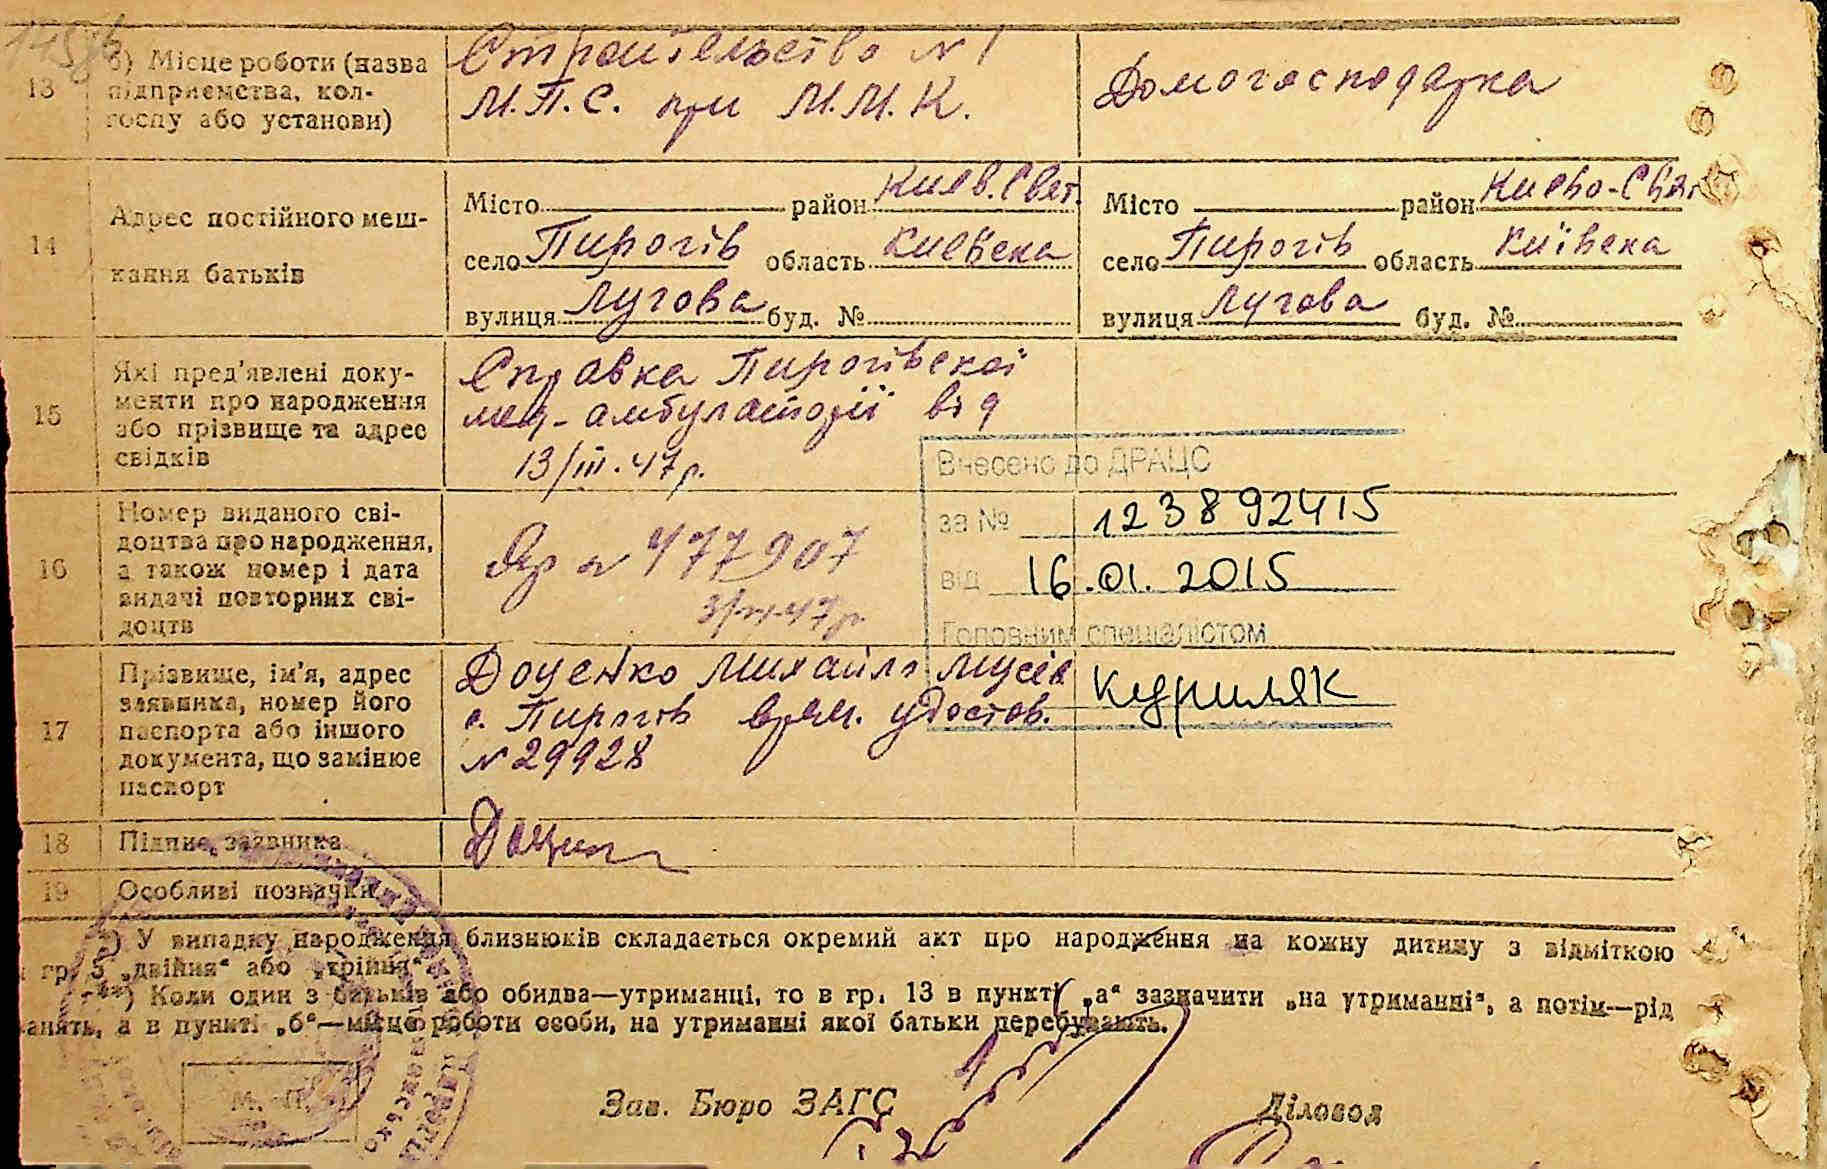 13
б) Місце роботи (назва
підприємства, кол-
госпу або установи)
Строительство N 1
М.П.С. при М.М.К.
Домогосподарка
14
Адрес постійного меш-
кання батьків
Місто район Киев. Свят.
село Пирогів область Киевска
вулиця Лугова буд. №
Місто район Києво-Свят
село Пирогів область Київска
вулиця Лугова буд. №
15
Які пред'явлені доку-
менти про народження
або прізвище та адрес
свідків
Справка Пирогівскої
мед-амбулаторії від
13/III.47р.
Внесено до ДРАЦС
за № 123892415
від 16.01.2015
Головним спеціалістом
Куриляк
16
Номер виданого сві-
доцтва про народження,
а також номер і дата
видачі повторних сві-
доцтв
N 477907
17
Прізвище, ім'я, адрес
заявника, номер його
паспорта або іншого
документа, що замінює
паспорт
Доценко Михайло Мусієв
с. Пирогів врем. удостов.
N 29928
18
Підпис заявника
19
Особливі позначки
*) У випадку народження близнюків складається окремий акт про народження на кожну дитину з відміткою
гр. 5 „двійня“ або „трійня“.
**) Коли один з батьків або обидва—утриманці, то в гр. 13 в пункті „а“ зазначити „на утриманні“, а потім—рід
занять, а в пункті „б“—місце роботи особи, на утриманні якої батьки перебувають.
М. П.
Зав. Бюро ЗАГС
Діловод